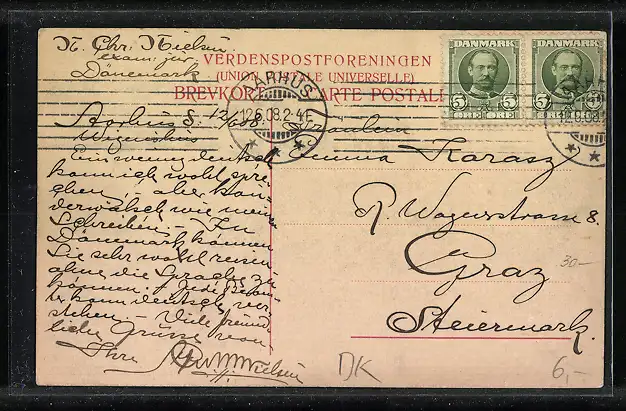 N. Chr. Nielsen
exam. jur.
Dänemark
VERDENSPOSTFORENINGEN
(UNION POSTALE UNIVERSELLE)
BREVKORT CARTE POSTALE
DANMARK
5 5
ØRE ØRE
DANMARK
5 5
AARHUS
12.6.08.2-4E
Aarhus d. 12/6 08.
Ein wenig deutsch
kann ich wohl spre-
chen – aber
wie meine
Schreiben – In
Dänemark können
Sie sehr wohl reisen
ohne die Sprache zu
können.
kann deutsch ver-
stehen. – Viele freund
liche Grüsse von
Ihre
Nielsen
Fraulein
Emma Karasz
R. Wagnerstrasse 8.
Graz
Steiermark.
30-
DK
6,-